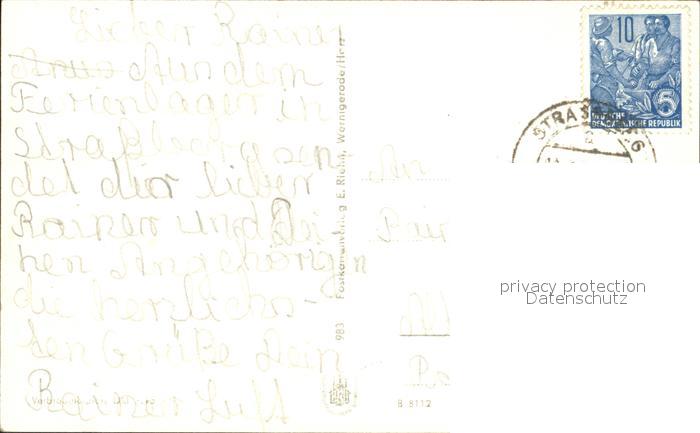 Lieber Rainer
Aus dem
Ferienlager in
Straßberg sen-
det dir lieber
Rainer und Dei
nen Angehörign
die herzlichs-
ten Grüße Dein
Rainer Luft
983 Postkartenverlag E. Riehn, Wernigerode/Harz
An
B 8112
10
5
DEUTSCHE
DEMOKRATISCHE REPUBLIK
STRASSBERG
privacy protection
Datenschutz